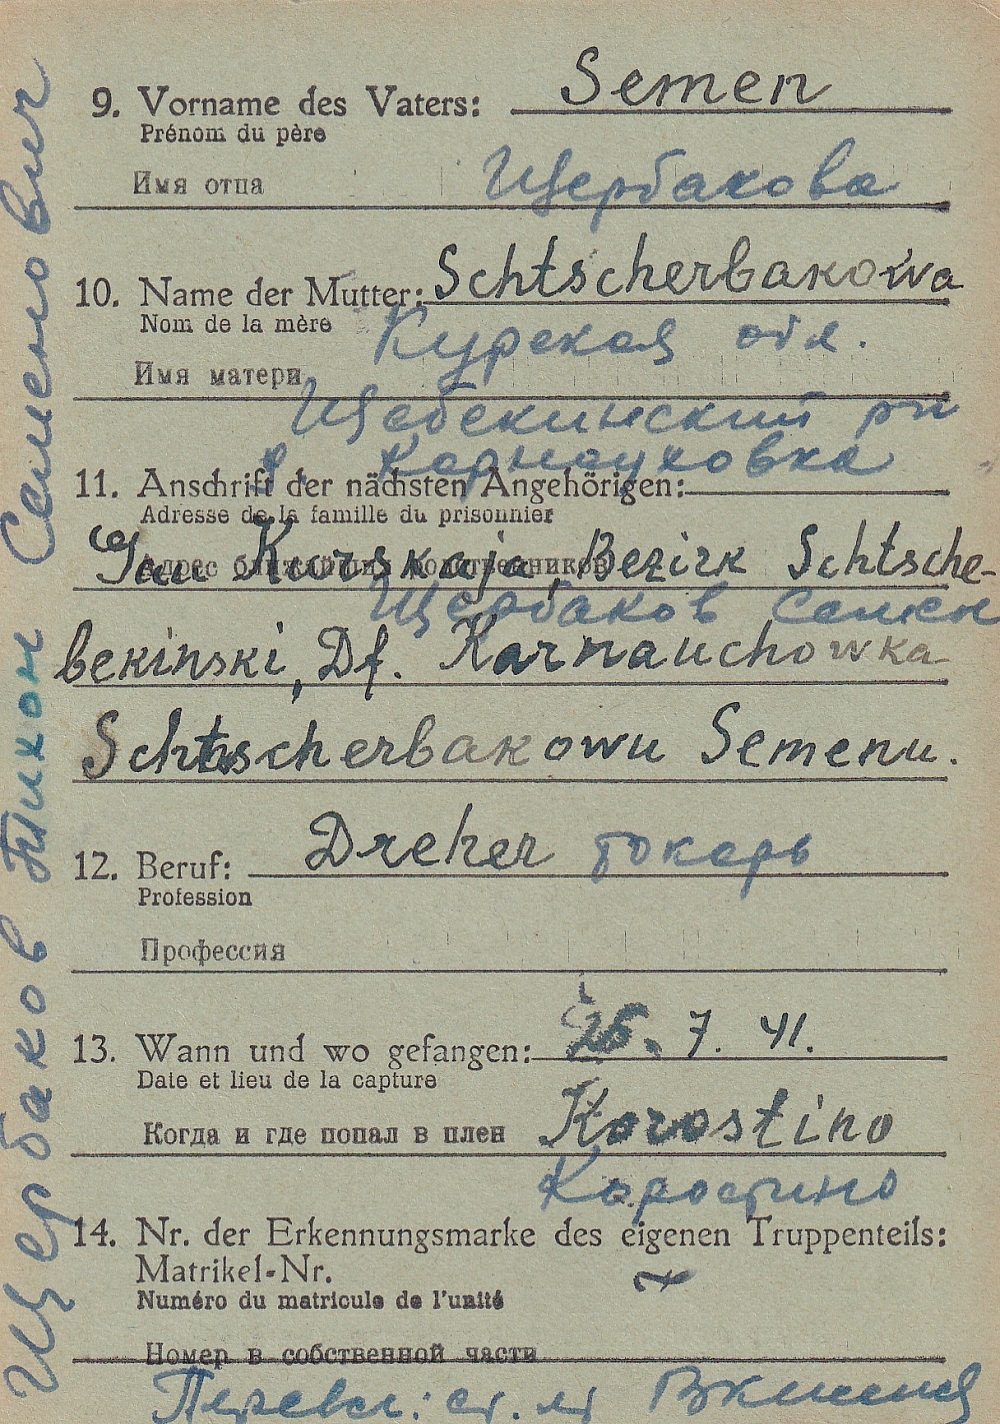 9. Vorname des Vaters: Semen
Prénom du père
Имя отпа Щербакова
10. Name der Mutter: Schtscherbakowa
Nom de la mère Курская обл.
Имя матери
Щебекинский рн
д. Карнауховка
11. Anschrift der nächsten Angehörigen:
Adresse de la famille du prisonnier
Адрес ближайших родственников
Gau Kurskaja, Bezirk Schtsche-
Щербаков Семен
bekinski, Df. Karnauchowka
Schtscherbakowu Semenu.
12. Beruf: Dreher токарь
Profession
Профессия
13. Wann und wo gefangen: 26. 7. 41.
Date et lieu de la capture
Когда и где попал в плен Korostino
Коростино
14. Nr. der Erkennungsmarke des eigenen Truppenteils:
Matrikel-Nr.
Numéro du matricule de l'unité
Номер в собственной части
Перевел: ст. лт
Щербаков Тихон Семенович